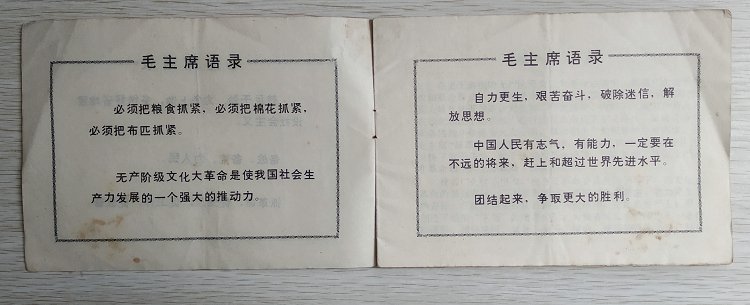 毛主席语录
必须把粮食抓紧，必须把棉花抓紧，
必须把布匹抓紧。
无产阶级文化大革命是使我国社会生
产力发展的一个强大的推动力。
毛主席语录
自力更生，艰苦奋斗，破除迷信，解
放思想。
中国人民有志气，有能力，一定要在
不远的将来，赶上和超过世界先进水平。
团结起来，争取更大的胜利。